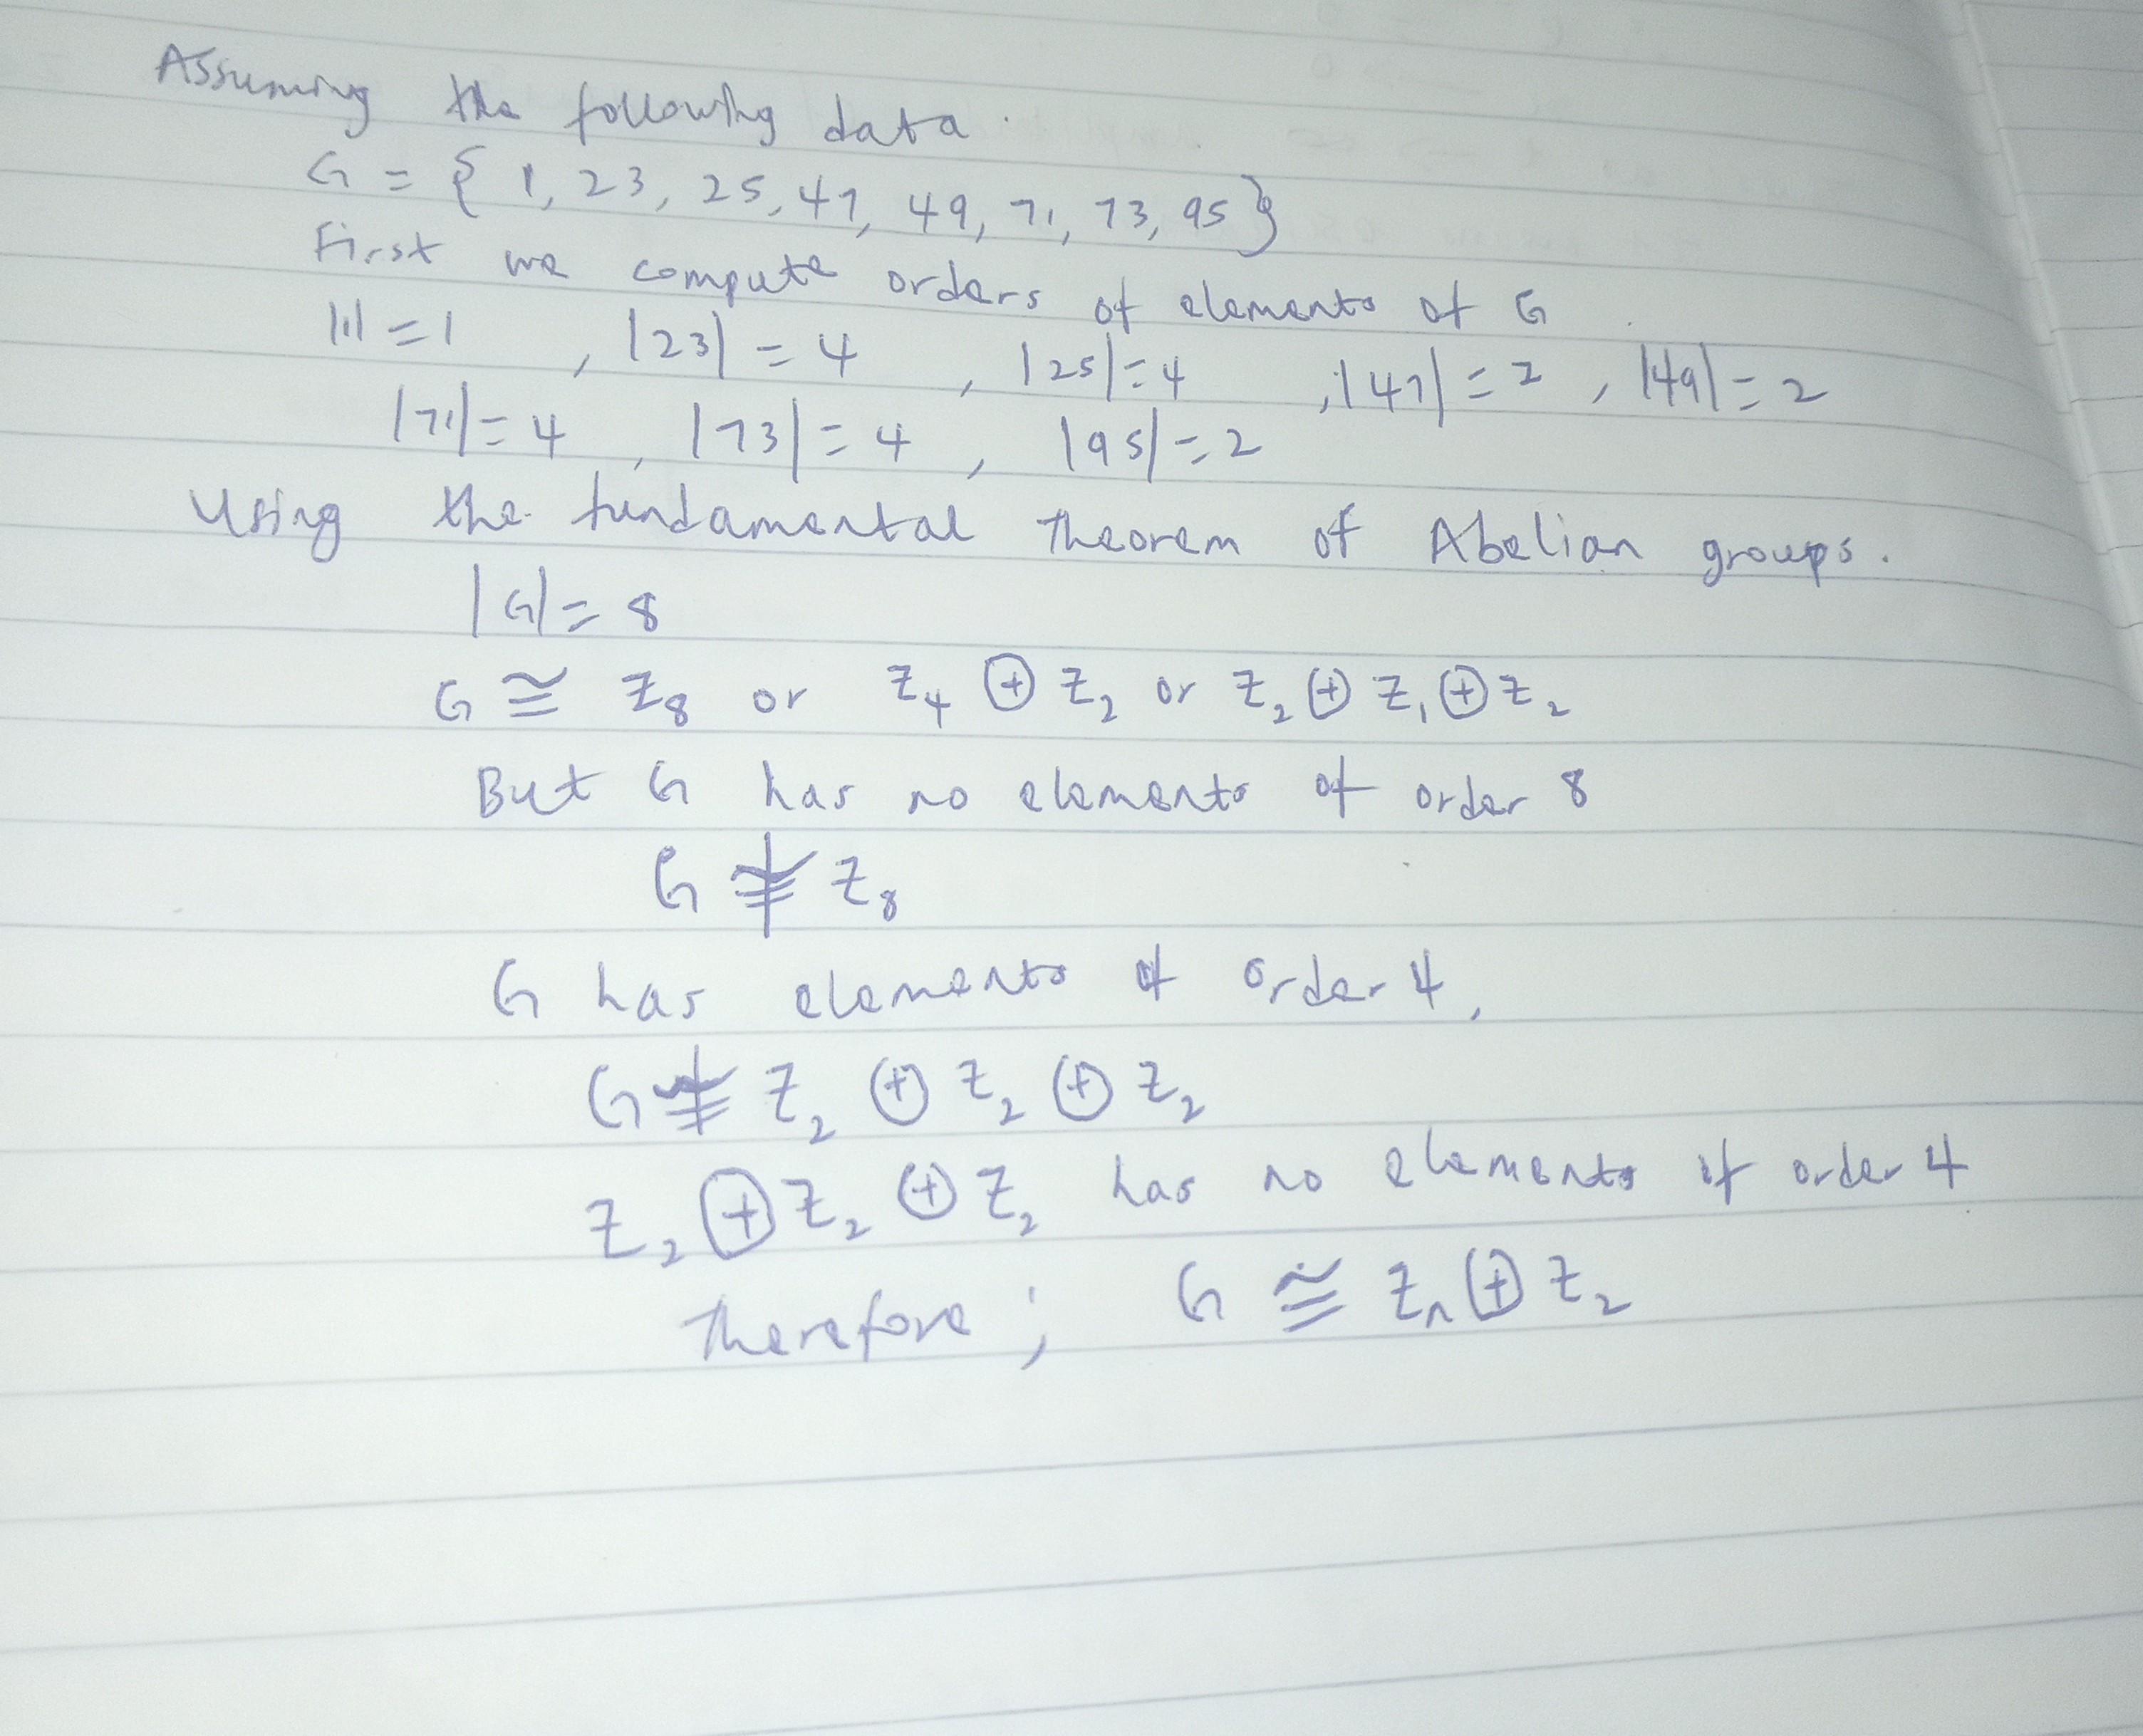 Assuming the following data.
G = { 1, 23, 25, 47, 49, 71, 73, 95 }
First we compute orders of elements of G.
|1| = 1 , |23| = 4 , |25| = 4 , |47| = 2 , |49| = 2
|71| = 4 , |73| = 4 , |95| = 2
Using the fundamental Theorem of Abelian groups.
|G| = 8
G ≅ Z₈ or Z₄ ⊕ Z₂ or Z₂ ⊕ Z₁ ⊕ Z₂
But G has no elements of order 8
G ≇ Z₈
G has elements of order 4,
G ≇ Z₂ ⊕ Z₂ ⊕ Z₂
Z₂ ⊕ Z₂ ⊕ Z₂ has no elements of order 4
Therefore ; G ≅ Zₙ ⊕ Z₂